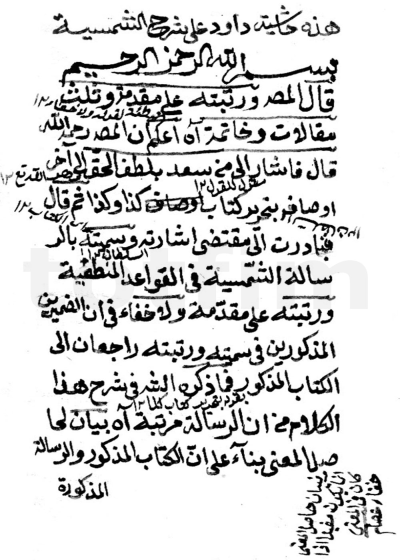 هذه حاشيته داود على شرح الشمسية
بسم الله الرحمن الرحيم
قال المصـ ورتبته على مقدمة وثلث
مقالات وخاتمة آه اعلم ان المصـ رحمه الله
قال فاشار الى من سعد بلطف الحق الى آخر
اوصافه بتحرير كتاب كذا وكذا ثم قال
فبادرت الى مقتضى اشارته وسميته بالر
سالة الشمسية في القواعد المنطقية
ورتبته على مقدمة ولا خفاء في ان الضميرين
المذكورين في سميته ورتبته راجعان الى
الكتاب المذكور فما ذكره الشـ في شرح هذا
الكلام من ان الرسالة مرتبة آه بيان لحا
صل المعنى بناء على ان الكتاب المذكور والرسالة
المذكورة